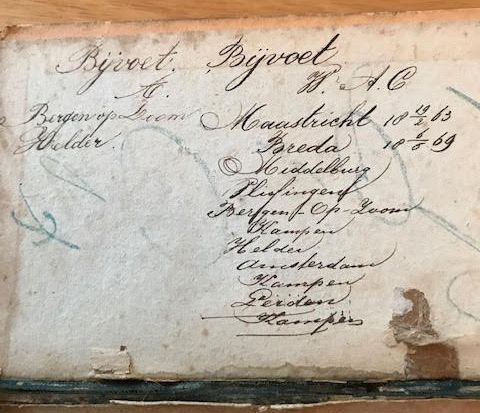 Bijvoet.
A.
Bergen op Zoom
Helder.
Bijvoet
W. A. C
Maastricht 18 19/2 63
Breda 18 6/5 69
Middelburg
Vlissingen
Bergen-Op-Zoom
Kampen
Helder
Amsterdam
Kampen
Leiden
Kampen